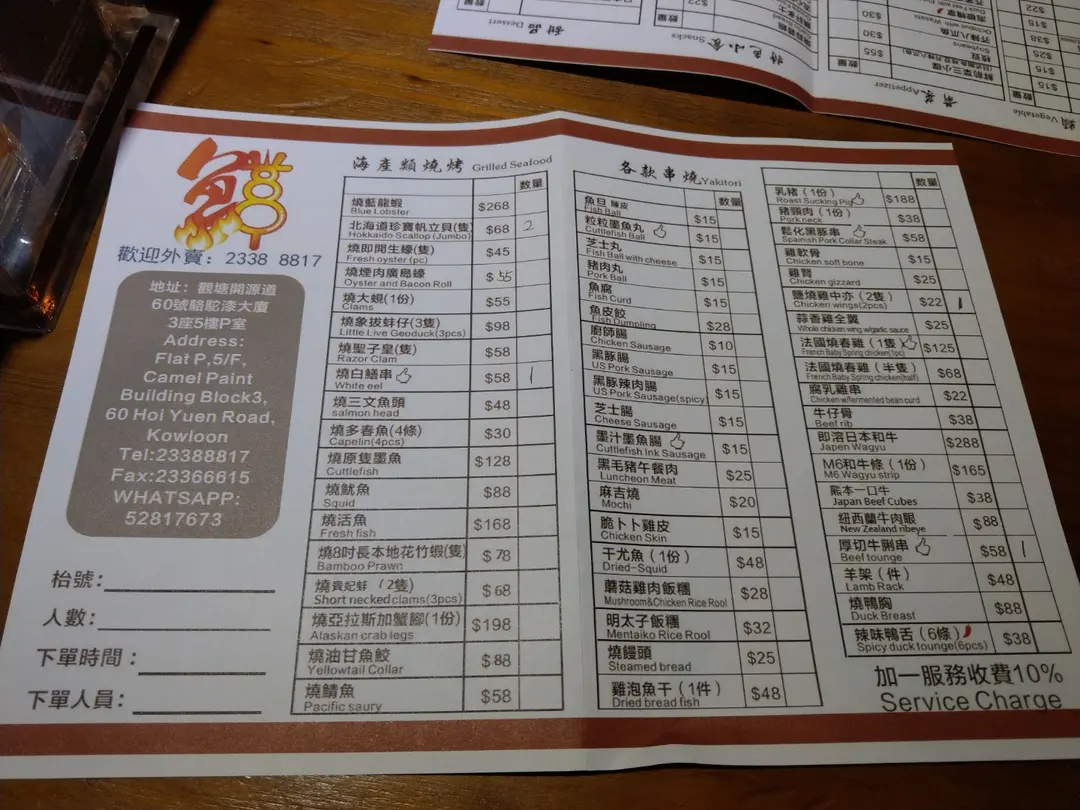 歡迎外賣：2338 8817
地址：觀塘開源道
60號駱駝漆大廈
3座5樓P室
Address:
Flat P,5/F,
Camel Paint
Building Block3,
60 Hoi Yuen Road,
Kowloon
Tel:23388817
Fax:23366615
WHATSAPP:
52817673
枱號：
人數：
下單時間：
下單人員：
海產類燒烤 Grilled Seafood
數量
燒藍龍蝦 $268
Blue Lobster
北海道珍寶帆立貝(隻) $68 2
Hokkaido Scallop (Jumbo)
燒即開生蠔(隻) $45
Fresh oyster (pc)
燒煙肉廣島蠔 $55
Oyster and Bacon Roll
燒大蜆(1份) $55
Clams
燒象拔蚌仔(3隻) $98
Little Live Geoduck(3pcs)
燒聖子皇(隻) $58
Razor Clam
燒白鱔串 $58 1
White eel
燒三文魚頭 $48
salmon head
燒多春魚(4條) $30
Capelin(4pcs)
燒原隻墨魚 $128
Cuttlefish
燒魷魚 $88
Squid
燒活魚 $168
Fresh fish
燒8吋長本地花竹蝦(隻) $78
Bamboo Prawn
燒貴妃蚌（2隻） $68
Short necked clams(3pcs)
燒亞拉斯加蟹腳(1份) $198
Alaskan crab legs
燒油甘魚鮫 $88
Yellowtail Collar
燒鯖魚 $58
Pacific saury
各款串燒 Yakitori
數量
魚旦 陳皮 $15
Fish Ball
粒粒墨魚丸 $15
Cuttlefish Ball
芝士丸 $15
Fish Ball with cheese
豬肉丸 $15
Pork Ball
魚腐
Fish Curd
魚皮餃 $28
Fish Dumpling
廚師腸 $10
Chicken Sausage
黑豚腸 $15
US Pork Sausage
黑豚辣肉腸 $15
US Pork Sausage(spicy)
芝士腸 $15
Cheese Sausage
墨汁墨魚腸 $15
Cuttlefish Ink Sausage
黑毛豬午餐肉 $25
Luncheon Meat
麻吉燒 $20
Mochi
脆卜卜雞皮 $15
Chicken Skin
干尤魚（1份） $48
Dried-Squid
蘑菇雞肉飯糰 $28
Mushroom&Chicken Rice Rool
明太子飯糰 $32
Mentaiko Rice Rool
燒饅頭 $25
Steamed bread
雞泡魚干（1件） $48
Dried bread fish
數量
乳豬（1份） $188
Roast Sucking Pig
豬頸肉（1份） $38
Pork neck
鬆化黑豚串 $58
Spainish Pork Collar Steak
雞軟骨 $15
Chicken soft bone
雞腎 $25
Chicken gizzard
鹽燒雞中亦（2隻） $22 1
Chicken wings(2pcs)
蒜香雞全翼 $25
Whole chicken wing w/garlic sauce
法國燒春雞（1隻） $125
French Baby Spring chicken(1pc)
法國燒春雞（半隻） $68
French Baby Spring chicken(half)
腐乳雞串 $22
Chicken w/fermented bean curd
牛仔骨 $38
Beef rib
即溶日本和牛 $288
Japen Wagyu
M6和牛條（1份） $165
M6 Wagyu strip
熊本一口牛 $38
Japan Beef Cubes
紐西蘭牛肉眼 $88
New Zealand ribeye
厚切牛脷串 $58 1
Beef tounge
羊架（件） $48
Lamb Rack
燒鴨胸 $88
Duck Breast
辣味鴨舌（6條） $38
Spicy duck tounge(6pcs)
加一服務收費10%
Service Charge
甜品 Dessert
數量
特色小食 Snacks
$22
數量
$30
$30
$55
芥辣八爪魚
Octopus with Wasabi
枝豆
Soybeans
前菜 Appetizer
$22
$15
$38
$25
$15
$15
數量
類 Vegetable